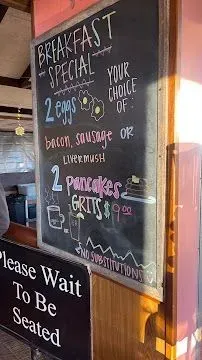 BREAKFAST
SPECIAL
YOUR
CHOICE
OF:
2 eggs
bacon, sausage OR
LIVERMUSH
2 Pancakes
GRITS $9.00
*NO SUBSTITUTIONS
Please Wait
To Be
Seated